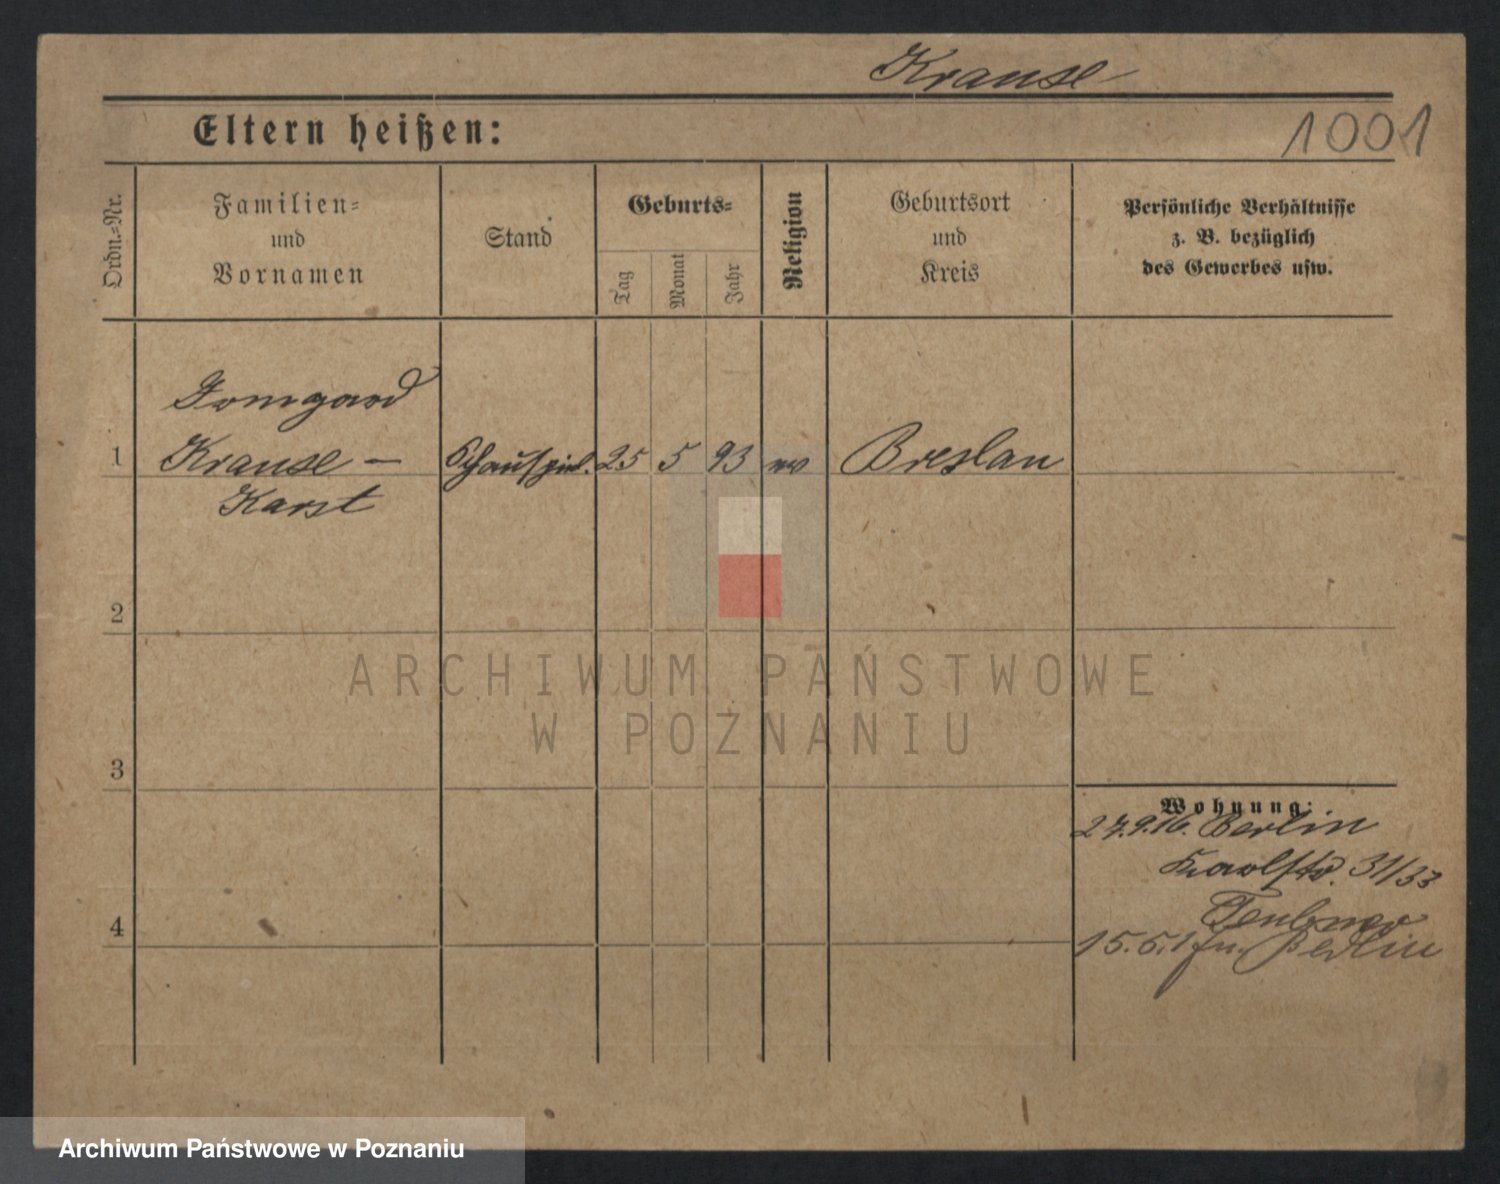 Krause
Eltern heißen:
1001
Ordn.=Nr.
Familien=
und
Vornamen
Stand
Geburts=
Tag
Monat
Jahr
Religion
Geburtsort
und
Kreis
Persönliche Verhältnisse
z. B. bezüglich
des Gewerbes usw.
Irmgard
1 Krause – Schauspiel. 25 5 93 ev Breslau
Karst
2
ARCHIWUM PAŃSTWOWE
W POZNANIU
3
Wohnung:
27.9.16. Berlin
Karlstr. 31/33
Teubner
4
15.5.17 n. Berlin
Archiwum Państwowe w Poznaniu